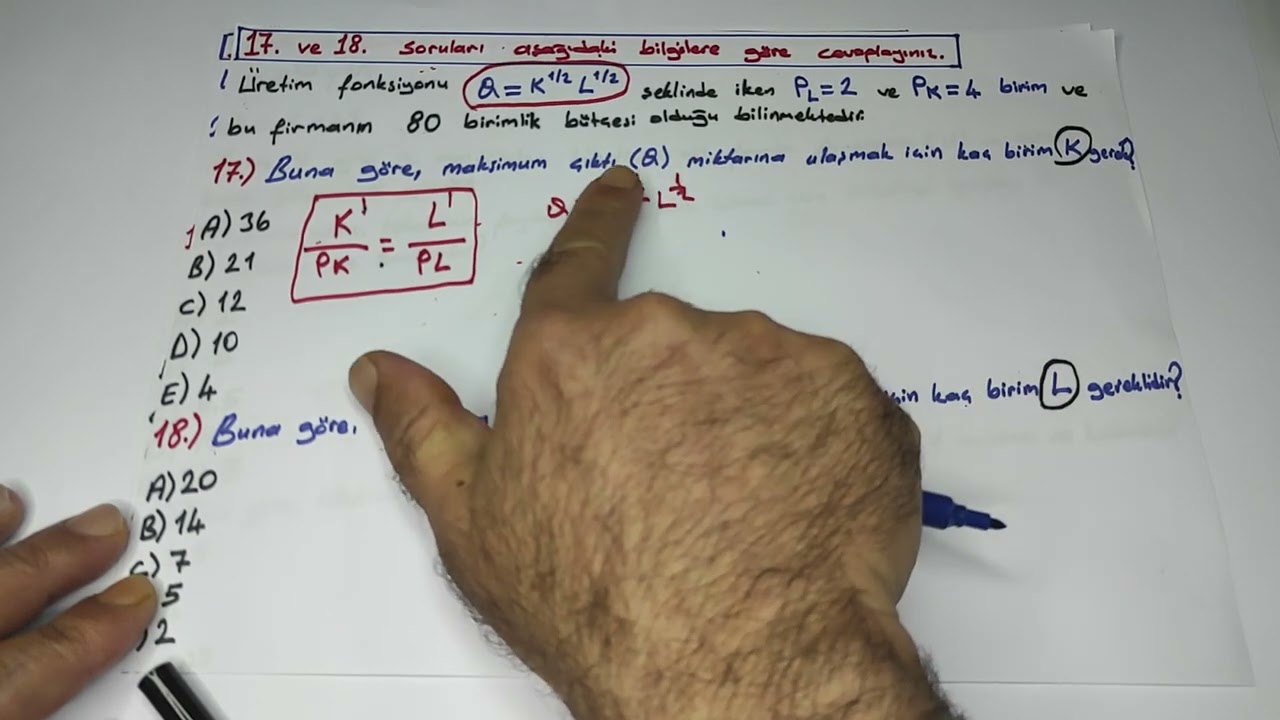 17. ve 18. soruları aşağıdaki bilgilere göre cevaplayınız.
Üretim fonksiyonu Q = K^1/2 L^1/2 şeklinde iken PL=2 ve PK=4 birim ve
bu firmanın 80 birimlik bütçesi olduğu bilinmektedir.
17.) Buna göre, maksimum çıktı (Q) miktarına ulaşmak için kaç birim K gerek?
A) 36
B) 21
C) 12
D) 10
E) 4
K^1/PK = L^1/PL
Q L^1/2
18.) Buna göre, için kaç birim L gereklidir?
A) 20
B) 14
C) 7
5
) 2